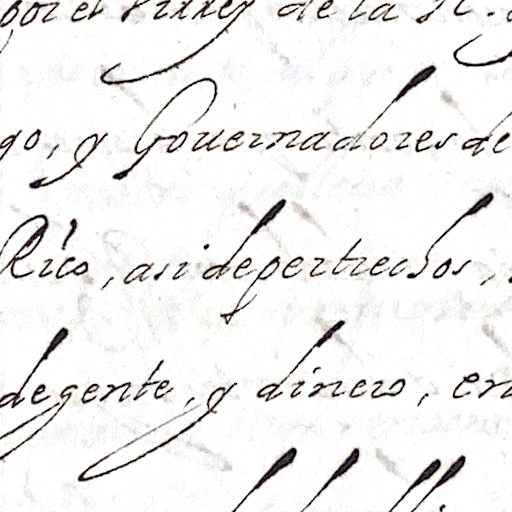 por el Virrey de la N.
go, y Governadores de
Rico, asi de pertrechos,
de gente, y dinero, en